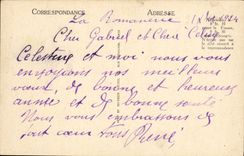 CORRESPONDANCE ADRESSE
La Romanerie 1924
Cher Gabriel et Chère
Celestine et moi nous vous
envoyons nos meilleurs
vœux de bonne et heureuse
année et de bonne santé
Nous vous embrassons de
tout cœur tous René